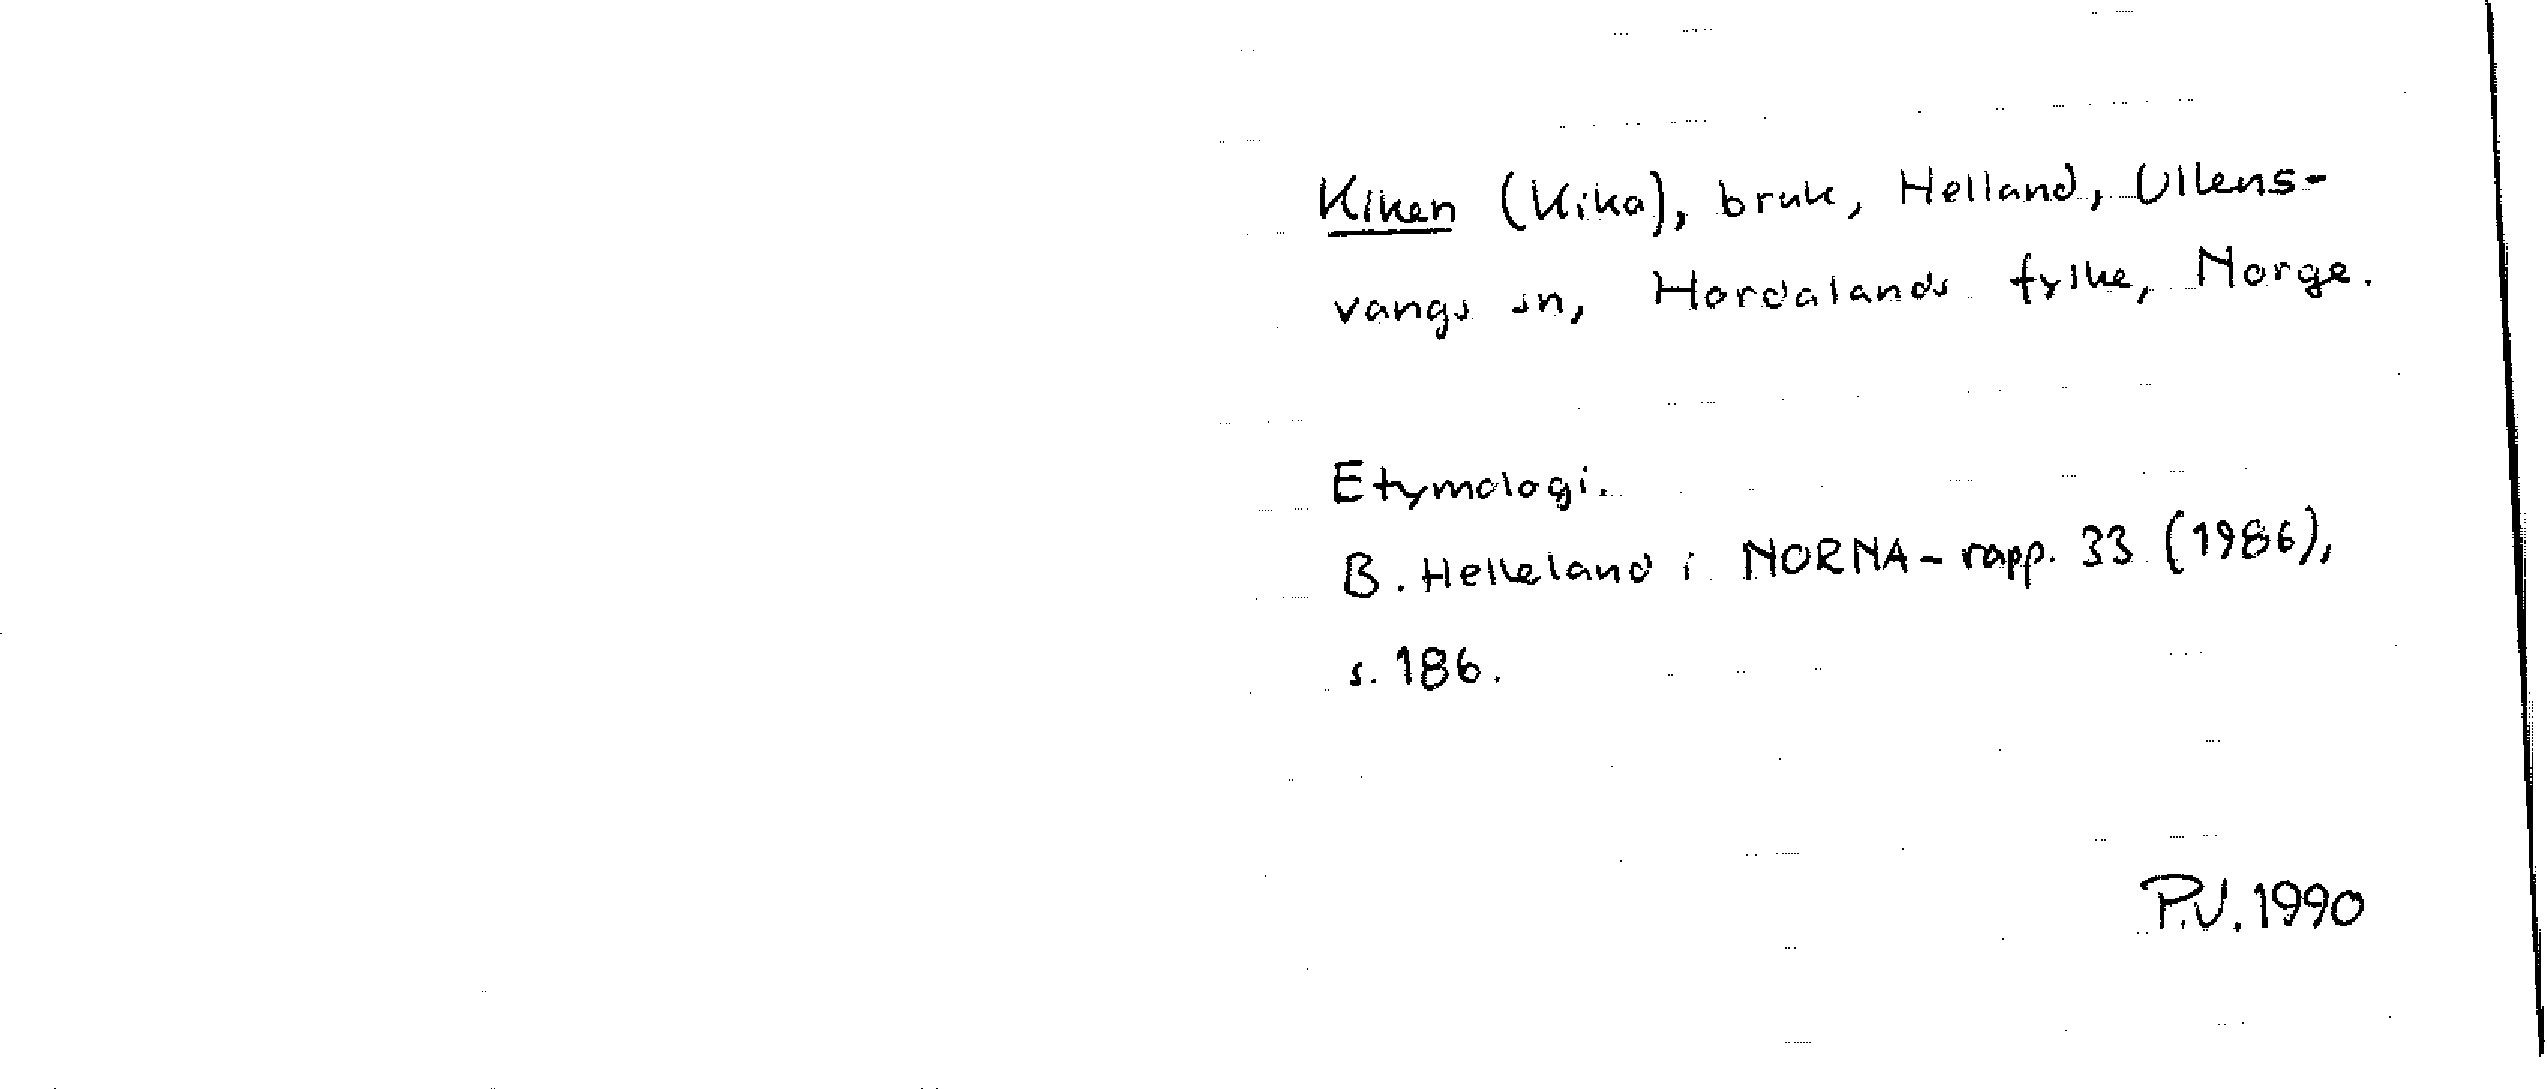 Kiken (Kika), bruk, Helland, Ullens-
vangs sn, Hordalands fylke, Norge.
Etymologi.
B. Helleland i NORNA-rapp. 33 (1986),
s. 186.
P.V. 1990